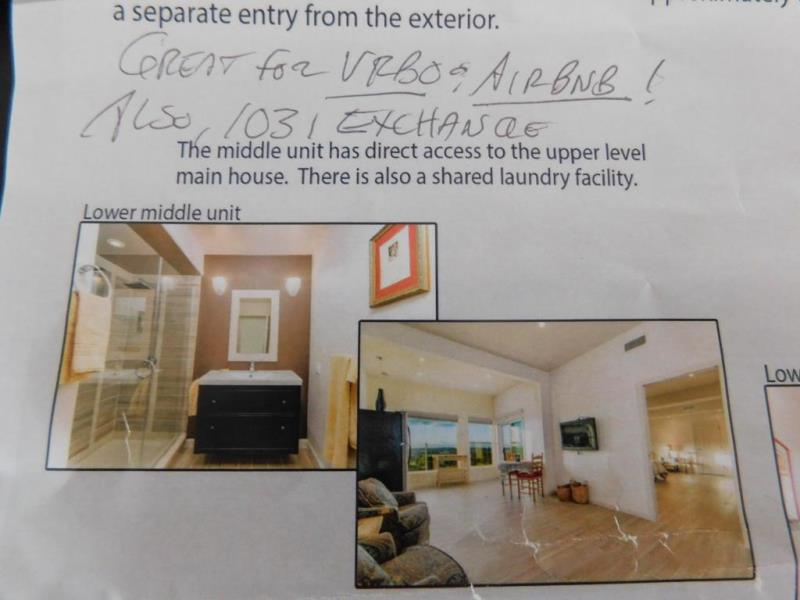 a separate entry from the exterior.
GREAT FOR VRBO & AIRBNB !
ALSO, 1031 EXCHANGE
The middle unit has direct access to the upper level
main house. There is also a shared laundry facility.
Lower middle unit
Low